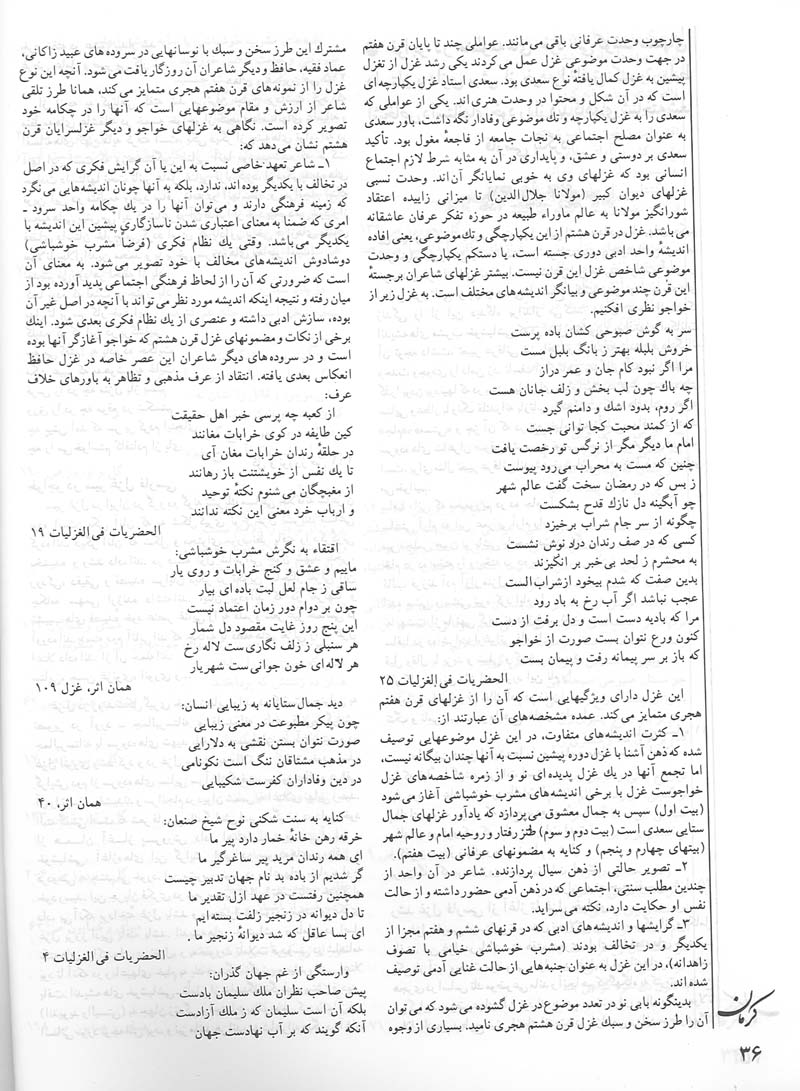 چارچوب وحدت عرفانی باقی می‌مانند. عواملی چند تا پایان قرن هفتم
در جهت وحدت موضوعی غزل عمل می‌کردند یکی رشد غزل از تغزل
پیشین به غزل کمال یافتهٔ نوع سعدی بود. سعدی استاد غزل یکپارچه‌ای
است که در آن شکل و محتوا در وحدت هنری‌اند. یکی از عواملی که
سعدی را به غزل یکپارچه و تك موضوعی وفادار نگه داشت، باور سعدی
به عنوان مصلح اجتماعی به نجات جامعه از فاجعهٔ مغول بود. تأکید
سعدی بر دوستی و عشق، و پایداری در آن به مثابه شرط لازم اجتماع
انسانی بود که غزلهای وی به خوبی نمایانگر آن‌اند. وحدت نسبی
غزلهای دیوان کبیر (مولانا جلال‌الدین) تا میزانی زاییده اعتقاد
شورانگیز مولانا به عالم ماوراء طبیعه در حوزه تفکر عرفان عاشقانه
می‌باشد. غزل در قرن هشتم از این یکپارچگی و تك‌موضوعی، یعنی افاده
اندیشهٔ واحد ادبی دوری جسته است، یا دستکم یکپارچگی و وحدت
موضوعی شاخص غزل این قرن نیست. بیشتر غزلهای شاعران برجستهٔ
این قرن چند موضوعی و بیانگر اندیشه‌های مختلف است. به غزل زیر از
خواجو نظری افکنیم.
سر به گوش صبوحی کشان باده پرست
خروش بلبله بهتر ز بانگ بلبل مست
مرا اگر نبود کام جان و عمر دراز
چه باك چون لب بخش و زلف جانان هست
اگر روم، بدود اشك و دامنم گیرد
که از کمند محبت کجا توانی جست
امام ما دیگر مگر از نرگس تو رخصت یافت
چنین که مست به محراب می‌رود پیوست
ز بس که در رمضان سخت گفت عالم شهر
چو آبگینه دل نازك قدح بشکست
چگونه از سر جام شراب برخیزد
کسی که در صف رندان درد نوش نشست
به محشرم ز لحد بی‌خبر بر انگیزند
بدین صفت که شدم بیخود ازشراب الست
عجب نباشد اگر آب رخ به باد رود
مرا که بادیه دست است و دل برفت از دست
کنون ورع نتوان بست صورت از خواجو
که باز بر سر پیمانه رفت و پیمان بست
الحضریات فی‌الغزلیات ۲۵
این غزل دارای ویژگیهایی است که آن را از غزلهای قرن هفتم
هجری متمایز می‌کند. عمده مشخصه‌های آن عبارتند از:
۱ـ کثرت اندیشه‌های متفاوت، در این غزل موضوعهایی توصیف
شده که ذهن آشنا با غزل دوره پیشین نسبت به آنها چندان بیگانه نیست،
اما تجمع آنها در یك غزل پدیده‌ای نو و از زمره شاخصه‌های غزل
خواجوست غزل با برخی اندیشه‌های مشرب خوشباشی آغاز می‌شود
(بیت اول) سپس به جمال معشوق می‌پردازد که یادآور غزلهای جمال
ستایی سعدی است (بیت دوم و سوم) طنز رفتار و روحیه امام و عالم شهر
(بیتهای چهارم و پنجم) و کنایه به مضمونهای عرفانی (بیت هفتم).
۲ـ تصویر حالتی از ذهن سیال پردازنده. شاعر در آن واحد از
چندین مطلب سنتی، اجتماعی که در ذهن آدمی حضور داشته و از حالت
نفس او حکایت دارد، نکته می‌سراید.
۳ـ گرایشها و اندیشه‌های ادبی که در قرنهای ششم و هفتم مجزا از
یکدیگر و در تخالف بودند (مشرب خوشباشی خیامی با تصوف
زاهدانه)، در این غزل به عنوان جنبه‌هایی از حالت غنایی آدمی توصیف
شده‌اند.
بدینگونه بابی نو در تعدد موضوع در غزل گشوده می‌شود که می‌توان
آن را طرز سخن و سبك غزل قرن هشتم هجری نامید. بسیاری از وجوه
مشترك این طرز سخن و سبك با نوسانهایی در سروده‌های عبید زاکانی،
عماد فقیه، حافظ و دیگر شاعران آن روزگار یافت می‌شود. آنچه این نوع
غزل را از نمونه‌های قرن هفتم هجری متمایز می‌کند، همانا طرز تلقی
شاعر از ارزش و مقام موضوعهایی است که آنها را در چکامه خود
تصویر کرده است. نگاهی به غزلهای خواجو و دیگر غزلسرایان قرن
هشتم نشان می‌دهد که:
۱ـ شاعر تعهد خاصی نسبت به این یا آن گرایش فکری که در اصل
در تخالف با یکدیگر بوده‌اند، ندارد، بلکه به آنها چونان اندیشه‌هایی می‌نگرد
که زمینه فرهنگی دارند و می‌توان آنها را در یك چکامه واحد سرود ـ
امری که ضمنا به معنای اعتباری شدن ناسازگاری پیشین این اندیشه با
یکدیگر می‌باشد. وقتی یك نظام فکری (فرضاً مشرب خوشباشی)
دوشادوش اندیشه‌های مخالف با خود تصویر می‌شود. به معنای آن
است که ضرورتی که آن را از لحاظ فرهنگی اجتماعی پدید آورده بود از
میان رفته و نتیجه اینکه اندیشه مورد نظر می‌تواند با آنچه در اصل غیر آن
بوده، سازش ادبی داشته و عنصری از یك نظام فکری بعدی شود. اینك
برخی از نکات و مضمونهای غزل قرن هشتم که خواجو آغازگر آنها بوده
است و در سروده‌های دیگر شاعران این عصر خاصه در غزل حافظ
انعکاس بعدی یافته. انتقاد از عرف مذهبی و تظاهر به باورهای خلاف
عرف:
از کعبه چه پرسی خبر اهل حقیقت
کین طایفه در کوی خرابات مغانند
در حلقهٔ رندان خرابات مغان آی
تا یك نفس از خویشتنت باز رهانند
از مغبچگان می شنوم نکتهٔ توحید
و ارباب خرد معنی این نکته ندانند
الحضریات فی‌الغزلیات ۱۹
اقتفاء به نگرش مشرب خوشباشی:
ماییم و عشق و کنج خرابات و روی یار
ساقی ز جام لعل لبت باده‌ای بیار
چون بر دوام دور زمان اعتماد نیست
این پنج روز غایت مقصود دل شمار
هر سنبلی ز زلف نگاری‌ست لاله رخ
هر لاله‌ای خون جوانی‌ست شهریار
همان اثر، غزل ۱۰۹
دید جمال ستایانه به زیبایی انسان:
چون پیکر مطبوعت در معنی زیبایی
صورت نتوان بستن نقشی به دلارایی
در مذهب مشتاقان ننگ است نکونامی
در دین وفاداران کفرست شکیبایی
همان اثر، ۴۰
کنایه به سنت شکنی نوح شیخ صنعان:
خرقه رهن خانهٔ خمار دارد پیر ما
ای همه رندان مرید پیر ساغرگیر ما
گر شدیم از باده بد نام جهان تدبیر چیست
همچنین رفتست در عهد ازل تقدیر ما
تا دل دیوانه در زنجیر زلفت بسته‌ایم
ای بسا عاقل که شد دیوانهٔ زنجیر ما.
الحضریات فی‌الغزلیات ۴
وارستگی از غم جهان گذران:
پیش صاحب نظران ملك سلیمان بادست
بلکه آن است سلیمان که ز ملك آزادست
آنکه گویند که بر آب نهادست جهان
کرمان
۳۶